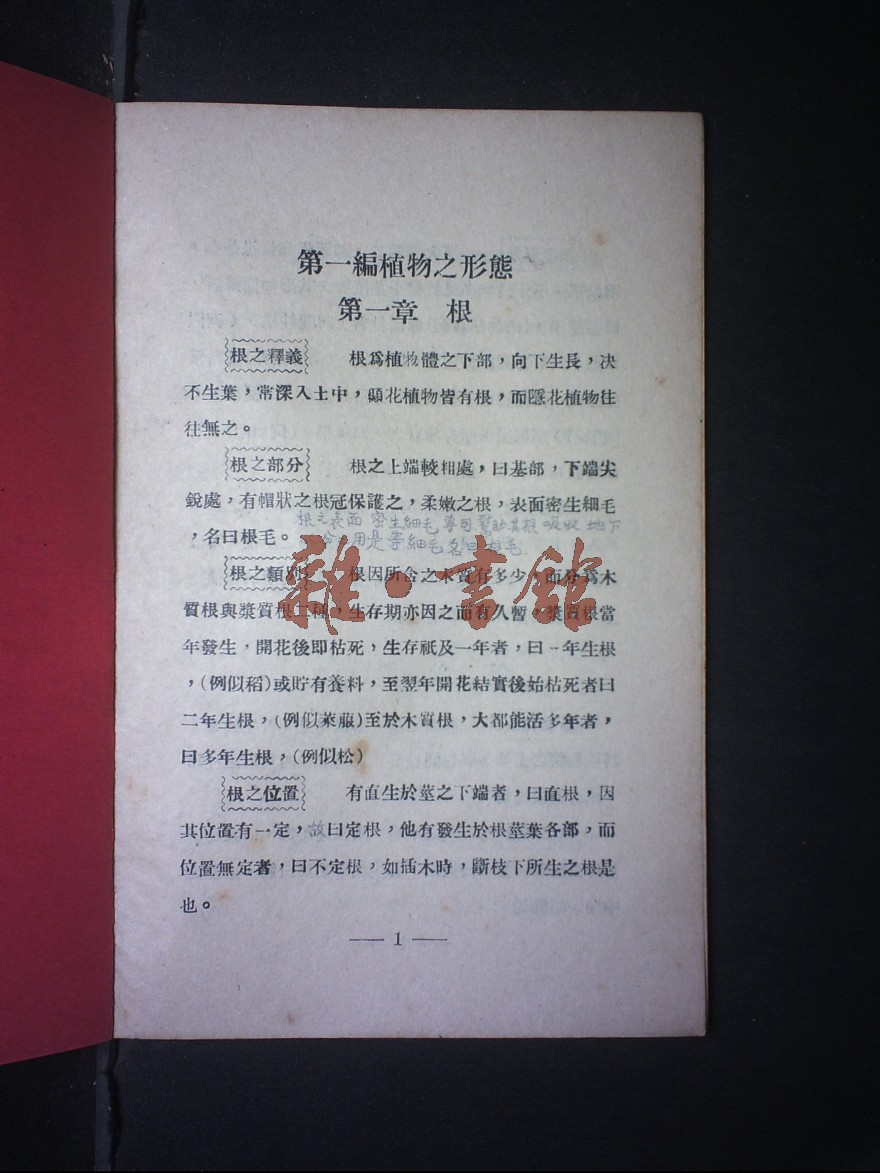 第一編植物之形態
第一章 根
根之釋義 根爲植物體之下部，向下生長，决
不生葉，常深入土中，顯花植物皆有根，而隱花植物往
往無之。
根之部分 根之上端較粗處，曰基部，下端尖
銳處，有帽狀之根冠保護之，柔嫩之根，表面密生細毛
，名曰根毛。
根之表面 密生細毛 專司幫助其根 吸收 地下
用是等細毛名曰根毛
根之類別 根因所含之木質有多少，而分爲木
質根與漿質根二種，生存期亦因之而有久暫，漿質根當
年發生，開花後即枯死，生存祇及一年者，曰一年生根
，(例似稻)或貯有養料，至翌年開花結實後始枯死者曰
二年生根，(例似萊菔)至於木質根，大都能活多年者，
曰多年生根，(例似松)
根之位置 有直生於莖之下端者，曰直根，因
其位置有一定，故曰定根，他有發生於根莖葉各部，而
位置無定者，曰不定根，如插木時，斷枝下所生之根是
也。
— 1 —
雜·書館